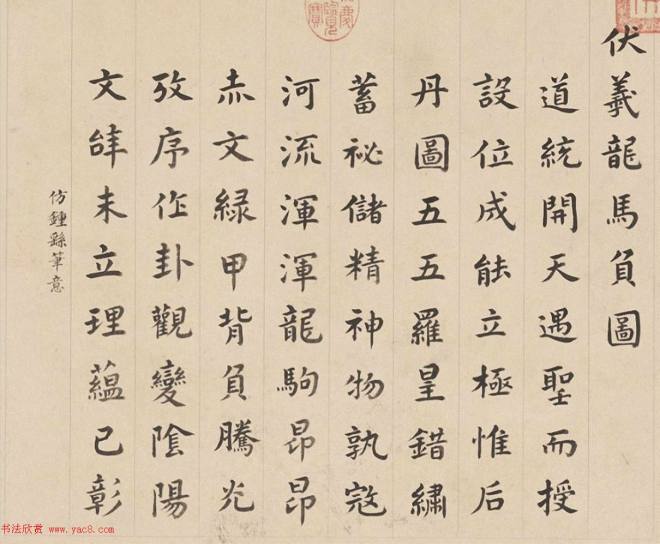 伏羲龍馬負圖
道統開天遇聖而授
設位成能立極惟后
丹圖五五羅皇錯繡
蓄祕儲精神物孰寇
河流渾渾龍駒昂昂
赤文綠甲背負騰光
攷序作卦觀變陰陽
文未立理蘊已彰
仿鍾繇筆意
书法欣赏 www.yac8.com